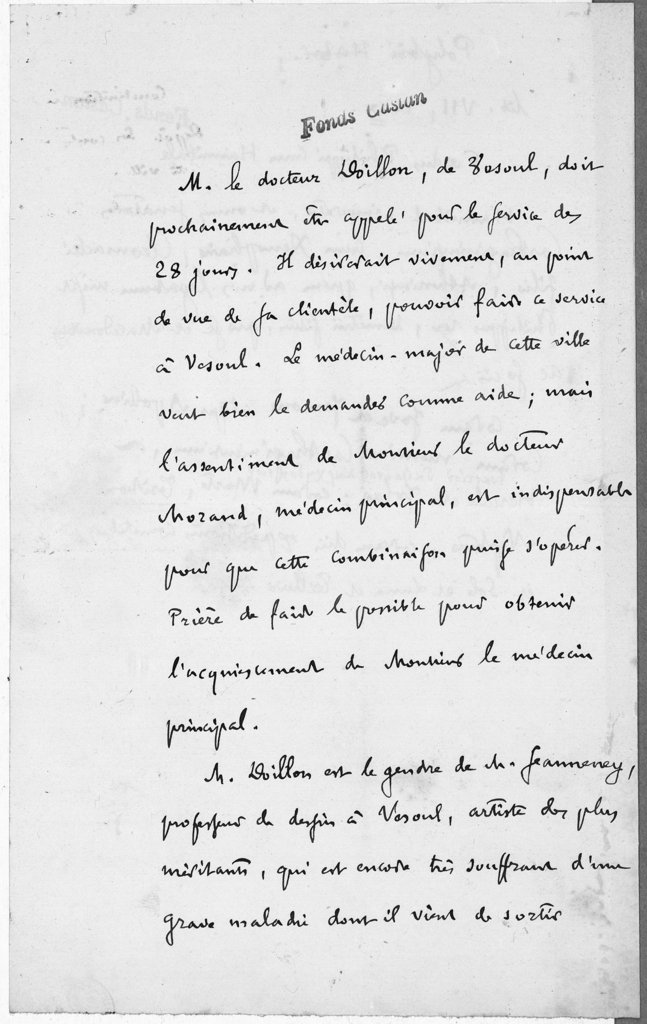 Fonds Castan
M. le docteur Doillon, de Vesoul, doit
prochainement être appelé pour le service des
28 jours. Il désirerait vivement, au point
de vue de sa clientèle, pouvoir faire ce service
à Vesoul. Le médecin-major de cette ville
veut bien le demander comme aide ; mais
l'assentiment de Monsieur le docteur
Morand, médecin principal, est indispensable
pour que cette combinaison puisse s'opérer.
Prière de faire le possible pour obtenir
l'acquiescement de Monsieur le médecin
principal.
M. Doillon est le gendre de M. Jeanneney,
professeur de dessin à Vesoul, artiste des plus
méritants, qui est encore très souffrant d'une
grave maladie dont il vient de sortir